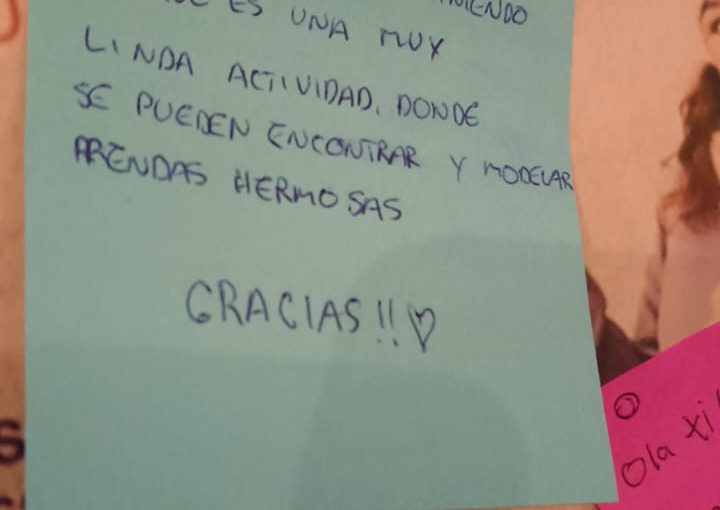 ES UNA MUY
LINDA ACTIVIDAD. DONDE
SE PUEDEN ENCONTRAR Y MODELAR
PRENDAS HERMOSAS
GRACIAS!! ♡
Ola xi